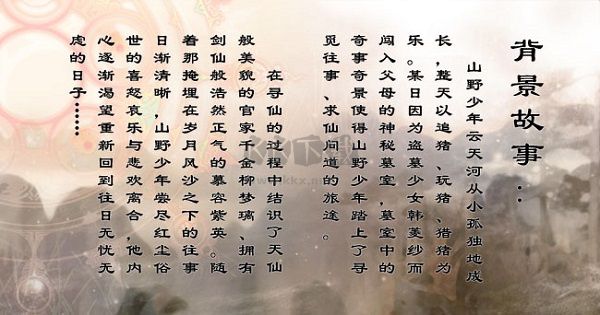 背景故事：
山野少年云天河从小孤独地成
长，整天以追猪、玩猪、猎猪为
乐。某日因为盗墓少女韩菱纱而
闯入父母的神秘墓室，墓室中的
奇事奇景使得山野少年踏上了寻
觅往事、求仙问道的旅途。
在寻仙的过程中结识了天仙
般美貌的官家千金柳梦璃、拥有
剑仙般浩然正气的慕容紫英。随
着那掩埋在岁月风沙之下的往事
日渐清晰，山野少年尝尽红尘俗
世的喜怒哀乐与悲欢离合，他内
心逐渐渴望重新回到往日无忧无
虑的日子……